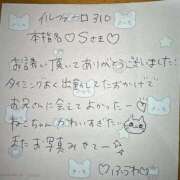 イルフィーロ310
本指名♡Sさま♡
お誘い頂いてありがとうございました!
タイミングよく出勤してたおかげで
お兄さんに会えてよかったー♡
ねこちゃんかわいすぎ♡
またお写真みせてー☆
♡ふうわ♡